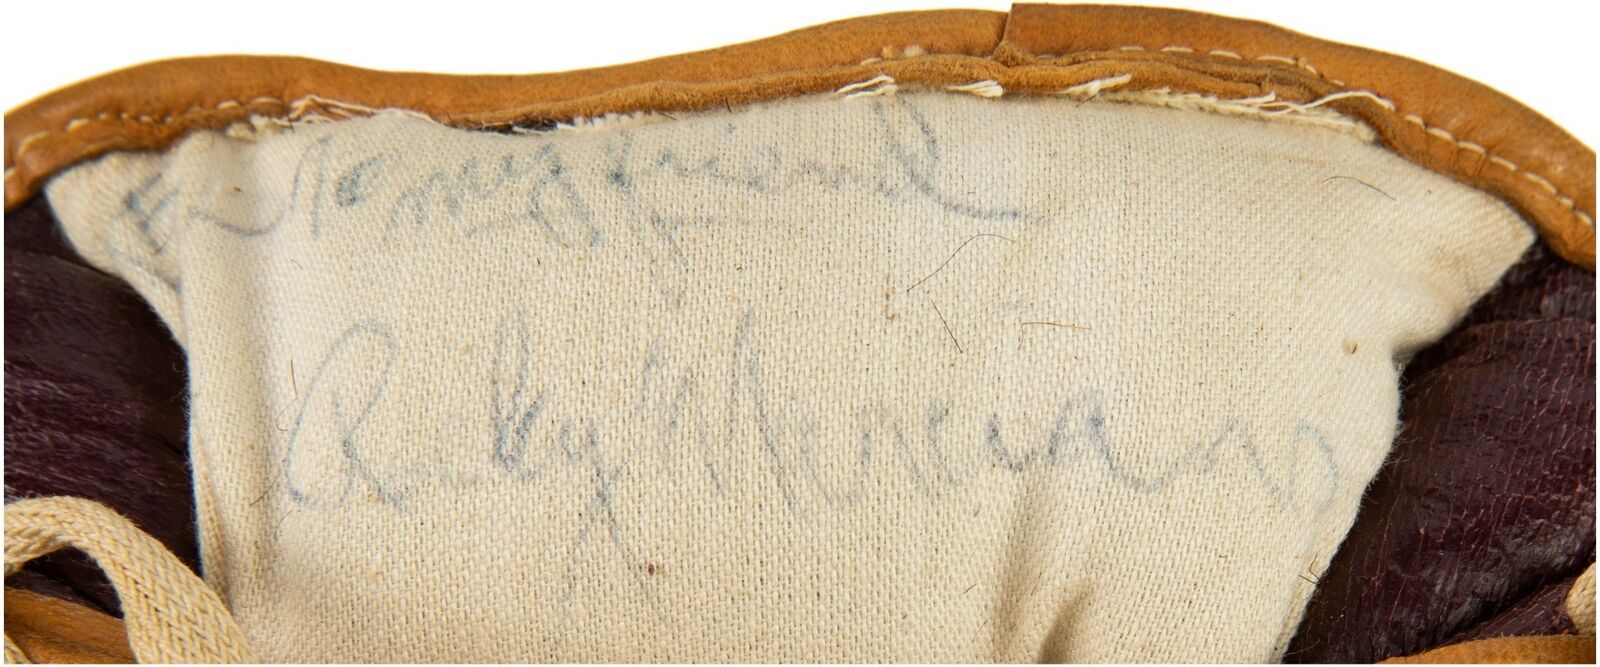 To my friend
Rocky Marciano